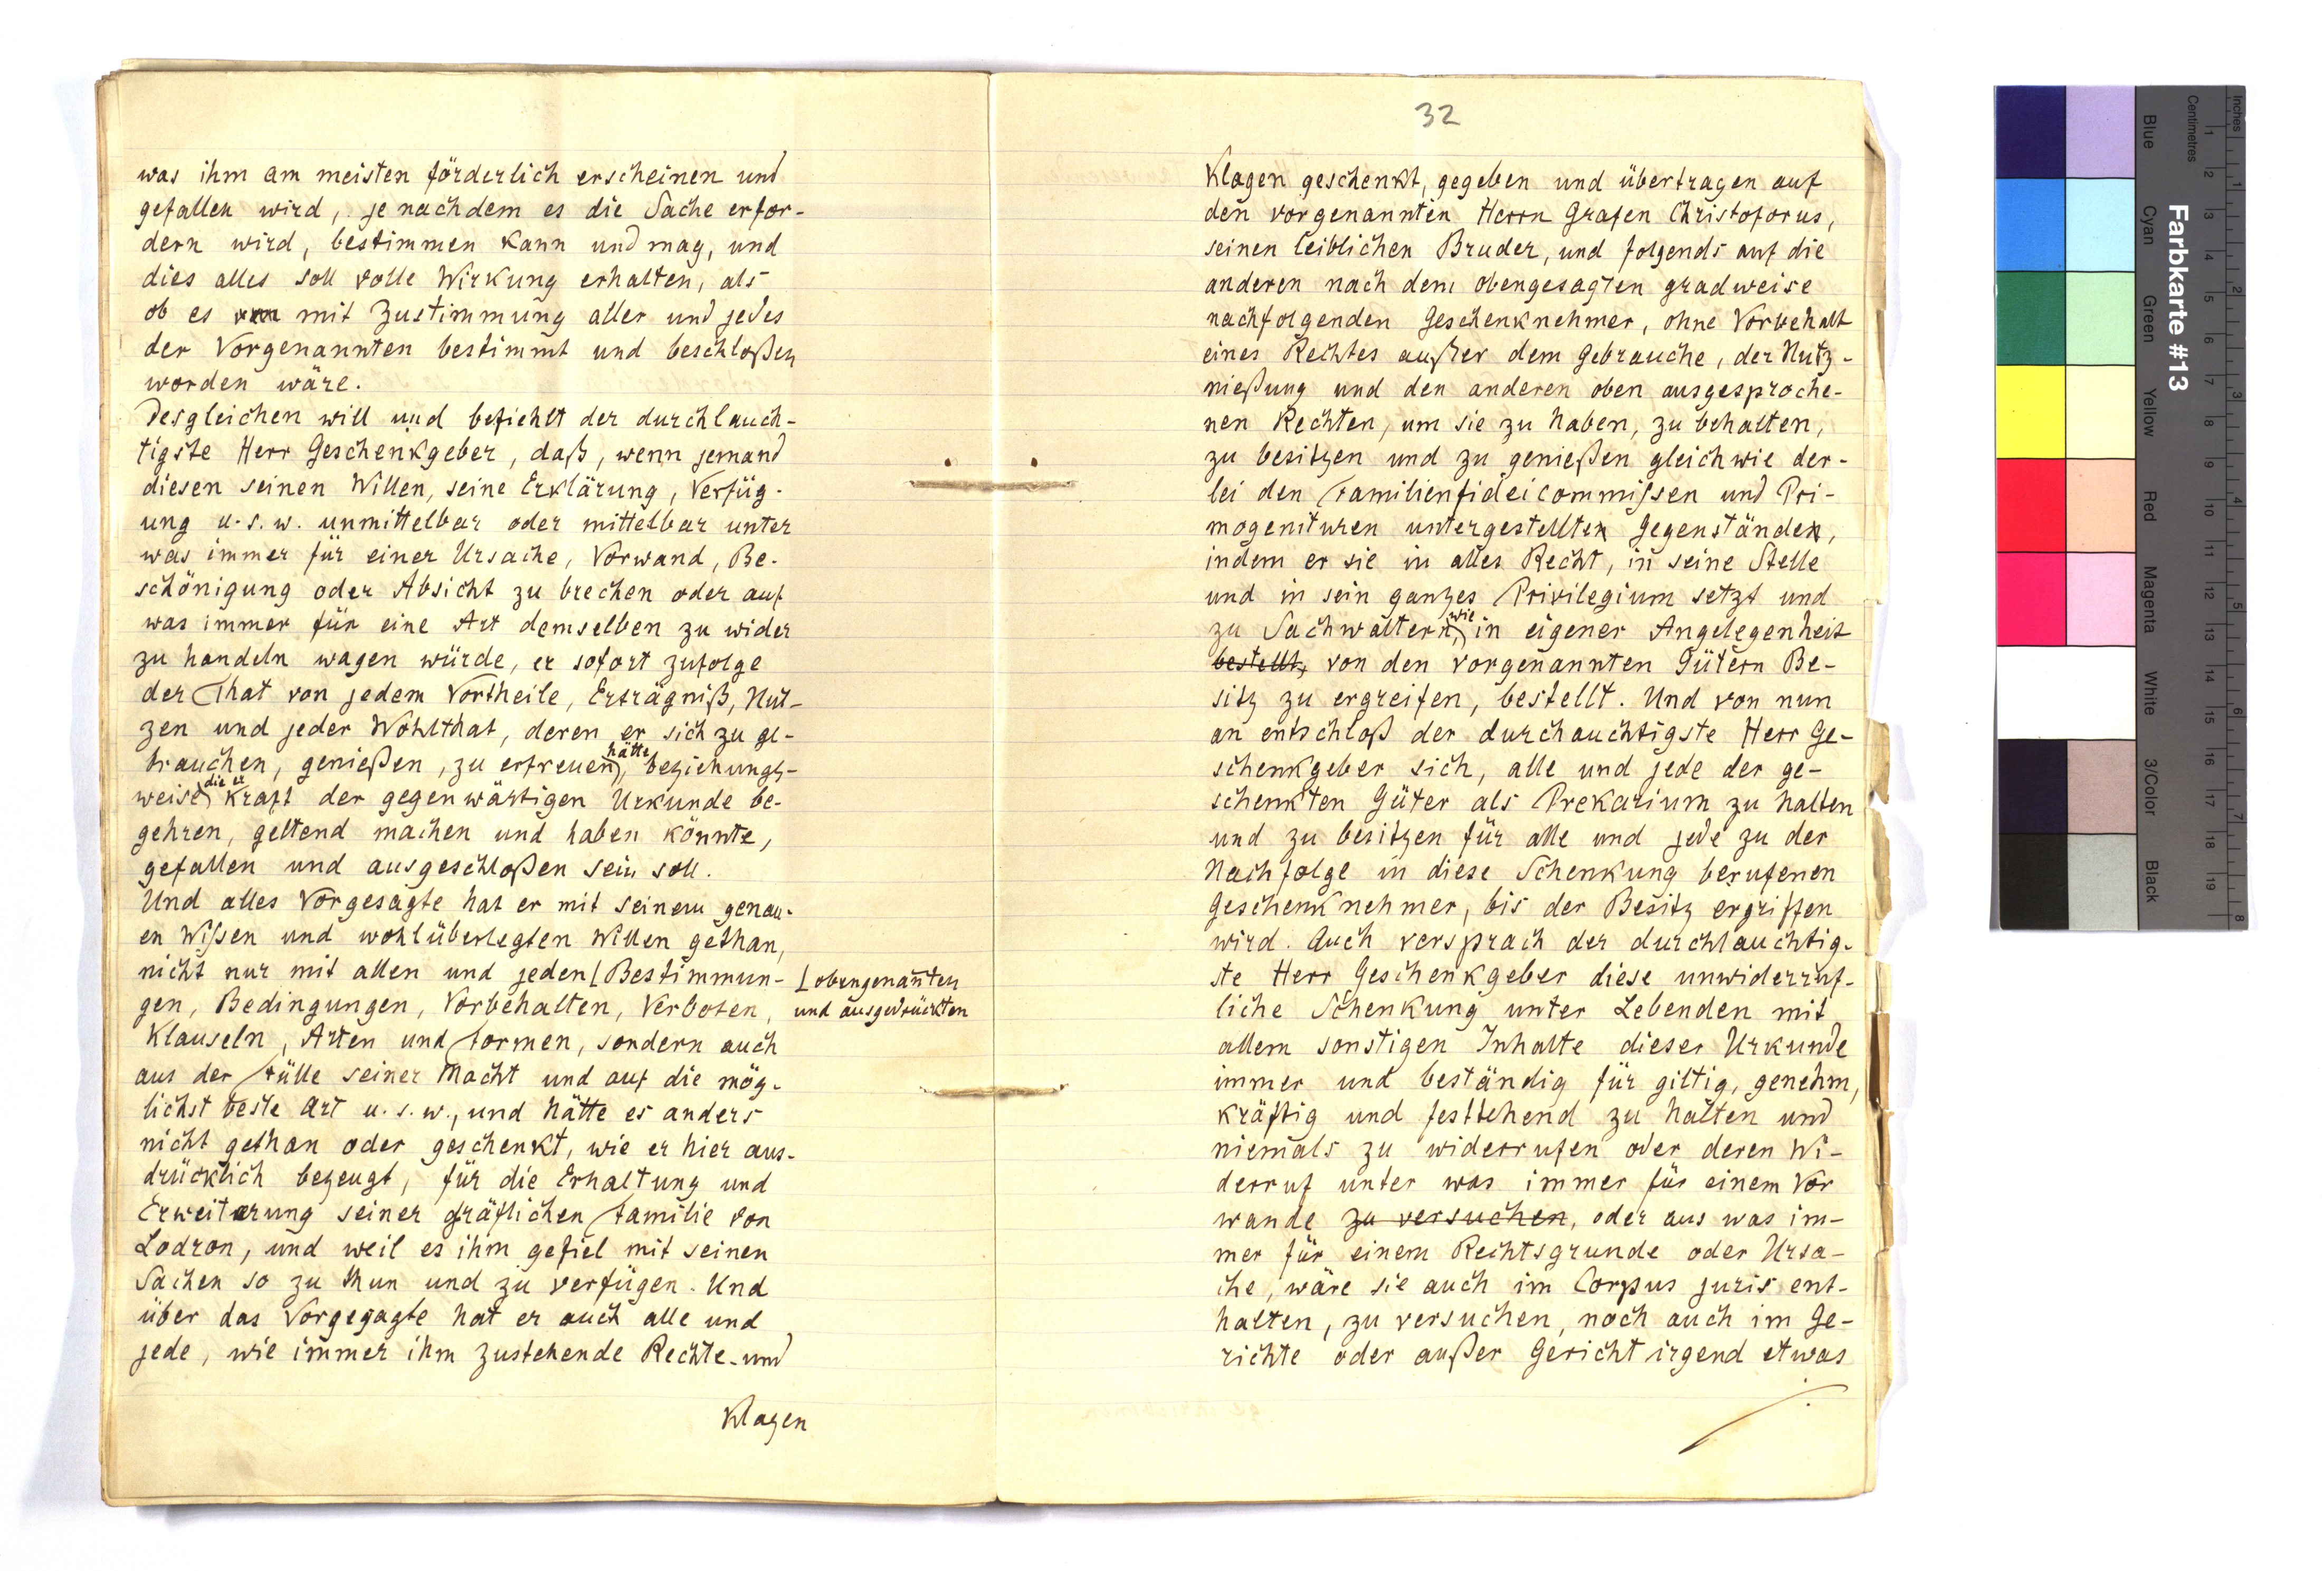 was ihm am meisten förderlich erscheinen und
gefallen wird, je nachdem es die Sache erfor-
dern wird, bestimmen kann und mag, und
dies alles soll volle Wirkung erhalten, als
ob es mit Zustimmung aller und jedes
der Vorgenannten bestimmt und beschloßen
worden wäre.
Desgleichen will und befiehlt der durchlauch-
tigste Herr Geschenkgeber, daß, wenn jemand
diesen seinen Willen, seine Erklärung, Verfüg-
ung u. s. w. unmittelbar oder mittelbar unter
was immer für einer Ursache, Vorwand, Be-
schönigung oder Absicht zu brechen oder auf
was immer für eine Art demselben zu wider
zu handeln wagen würde, er sofort zufolge
der That von jedem Vortheile, Erträgniß, Nut-
zen und jeder Wohlthat, deren er sich zu ge-
brauchen, genießen, zu erfreuen hätte, beziehungs-
weise die er kraft der gegenwärtigen Urkunde be-
gehren, geltend machen und haben könnte,
gefallen und ausgeschloßen sein soll.
Und alles Vorgesagte hat er mit seinem genau-
en Wißen und wohlüberlegten Willen gethan,
nicht nur mit allen und jeden ⌊ Bestimmun-
gen, Bedingungen, Vorbehalten, Verboten,
Klauseln, Arten und Formen, sondern auch
aus der Fülle seiner Macht und auf die mög-
lichst beste Art u. s. w., und hätte es anders
nicht gethan oder geschenkt, wie er hier aus-
drücklich bezeugt, für die Erhaltung und
Erweiterung seiner gräflichen Familie von
Lodron, und weil es ihm gefiel mit seinen
Sachen so zu thun und zu verfügen. Und
über das Vorgegagte hat er auch alle und
jede, wie immer ihm zustehende Rechte und
Klagen
⌊ obengenan̅ten
und ausgedrückten
32
Klagen geschenkt, gegeben und übertragen auf
den vorgenannten Herrn Grafen Christoforus,
seinen leiblichen Bruder, und folgends auf die
anderen nach dem obengesagten gradweise
nachfolgenden Geschenknehmer, ohne Vorbehalt
eines Rechtes außer dem Gebrauche, der Nutz-
nießung und den anderen oben ausgesproche-
nen Rechten, um sie zu haben, zu behalten,
zu besitzen und zu genießen gleichwie der-
lei den Familienfideicommißen und Pri-
mogenituren untergestellten Gegenständen,
indem er sie in alles Recht, in seine Stelle
und in sein ganzes Privilegium setzt und
zu Sachwaltern, wie in eigener Angelegenheit
bestellt, von den vorgenannten Gütern Be-
sitz zu ergreifen, bestellt. Und von nun
an entschloß der durchauchtigste Herr Ge-
schenkgeber sich, alle und jede der ge-
schenkten Güter als Prekarium zu halten
und zu besitzen für alle und jede zu der
Nachfolge in diese Schenkung berufenen
Geschenknehmer, bis der Besitz ergriffen
wird. Auch versprach der durchlauchtig-
ste Herr Geschenkgeber diese unwiderruf-
liche Schenkung unter Lebenden mit
allem sonstigen Inhalte dieser Urkunde
immer und beständig für giltig, genehm,
kräftig und festtehend zu halten und
niemals zu widerrufen oder deren Wi-
derruf unter was immer für einem Vor
wande zu versuchen, oder aus was im-
mer für einem Rechtsgrunde oder Ursa-
che, wäre sie auch im Corpus juris ent-
halten, zu versuchen, noch auch im Ge-
richte oder außer Gericht irgend etwas
Farbkarte #13
Blue
Cyan
Green
Yellow
Red
Magenta
White
3/Color
Black
Centimetres
Inches
1 2 3 4 5 6 7 8 9 10 11 12 13 14 15 16 17 18 19
1 2 3 4 5 6 7 8